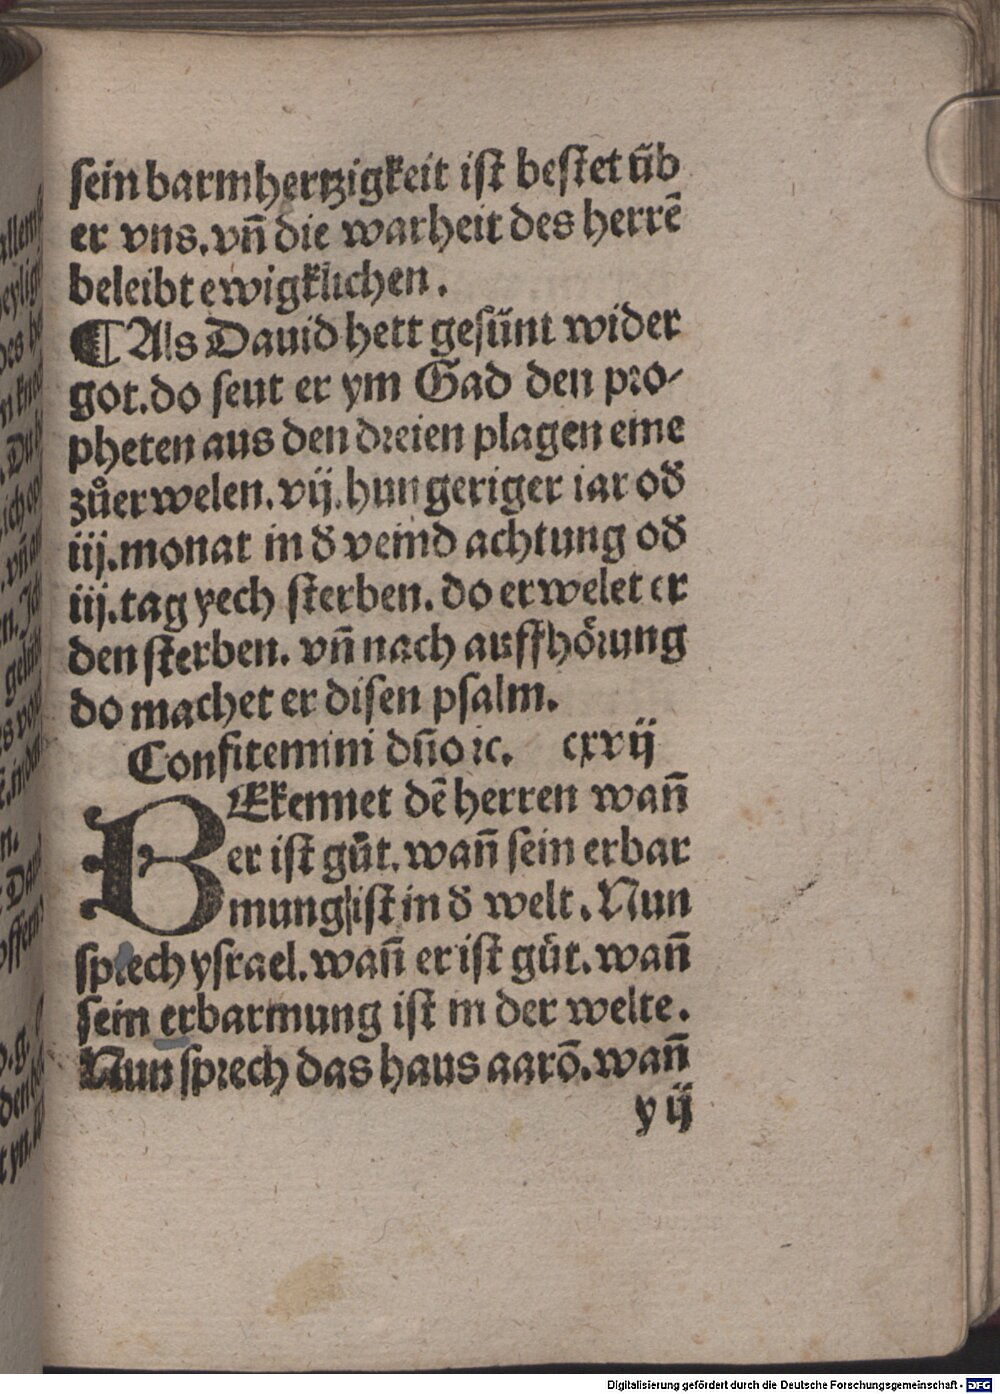 sein barmhertzigkeit ist bestet üb
er vns. vñ die warheit des herrē
beleibt ewigklichen.
¶ Als Dauid hett gesünt wider
got. do sent er ym Gad den pro⸗
pheten aus den dreien plagen eine
zůerwelen. vij. hungeriger iar oď
iij. monat in ď veind achtung oď
iij. tag yech sterben. do erwelet er
den sterben. vñ nach auffhörung
do machet er disen psalm.
Confitemini dño ⁊c. cxvij
BEkennet dē herren wañ
er ist gůt. wañ sein erbar
mung ist in ď welt. Nun
sprech ysrael. wañ er ist gůt. wañ
sein erbarmung ist in der welte.
Nun sprech das haus aarō. wañ
y ij
Digitalisierung gefördert durch die Deutsche Forschungsgemeinschaft - DFG